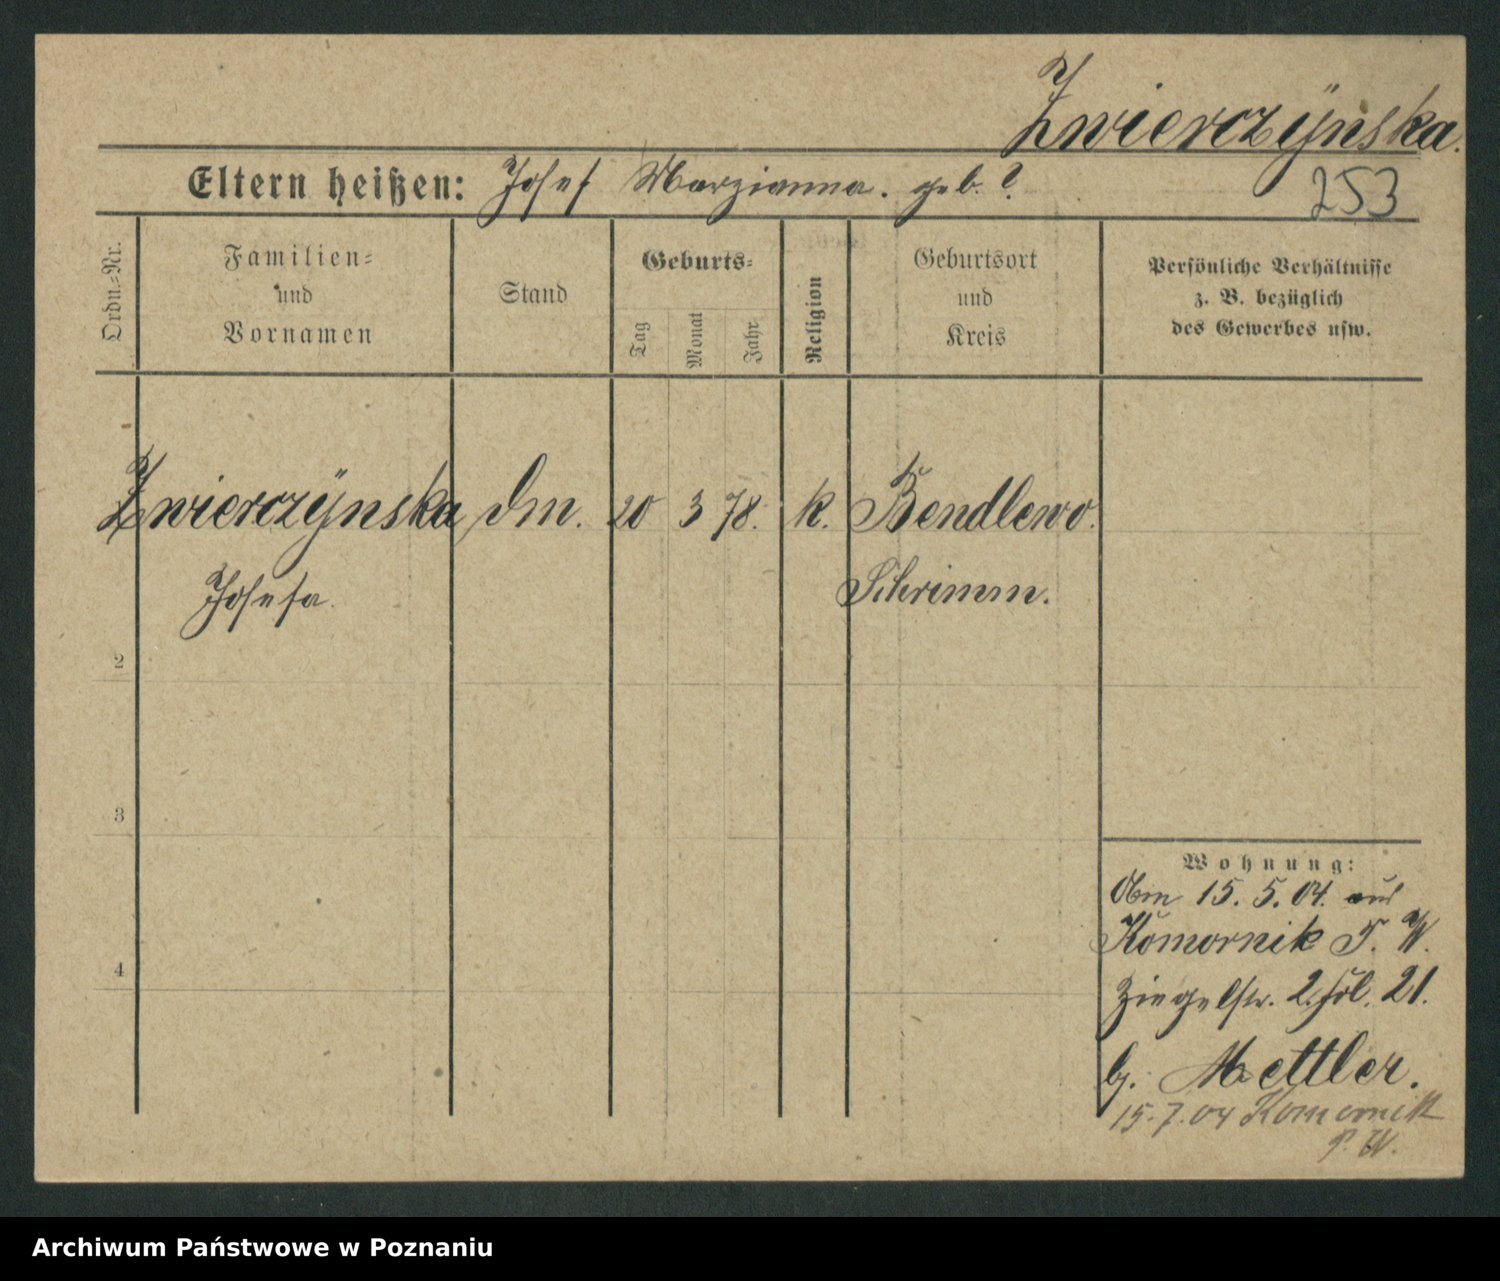 Zwierczÿnska.
Eltern heißen: Josef Marzianna. geb. ?
253
Ordn.-Nr.
Familien-
und
Vornamen
Stand
Geburts-
Tag
Monat
Jahr
Religion
Geburtsort
und
Kreis
Persönliche Verhältnisse
z. B. bezüglich
des Gewerbes usw.
Zwierczÿnska Dm. 20 3 78. k. Bendlewo.
Josefa. Schrimm.
2
3
4
Wohnung:
15. 5. 04. aus
Komornik P. W.
Ziegelstr. 21.
b. Mettler.
15.7.04 Komornik
P. W.
Archiwum Państwowe w Poznaniu